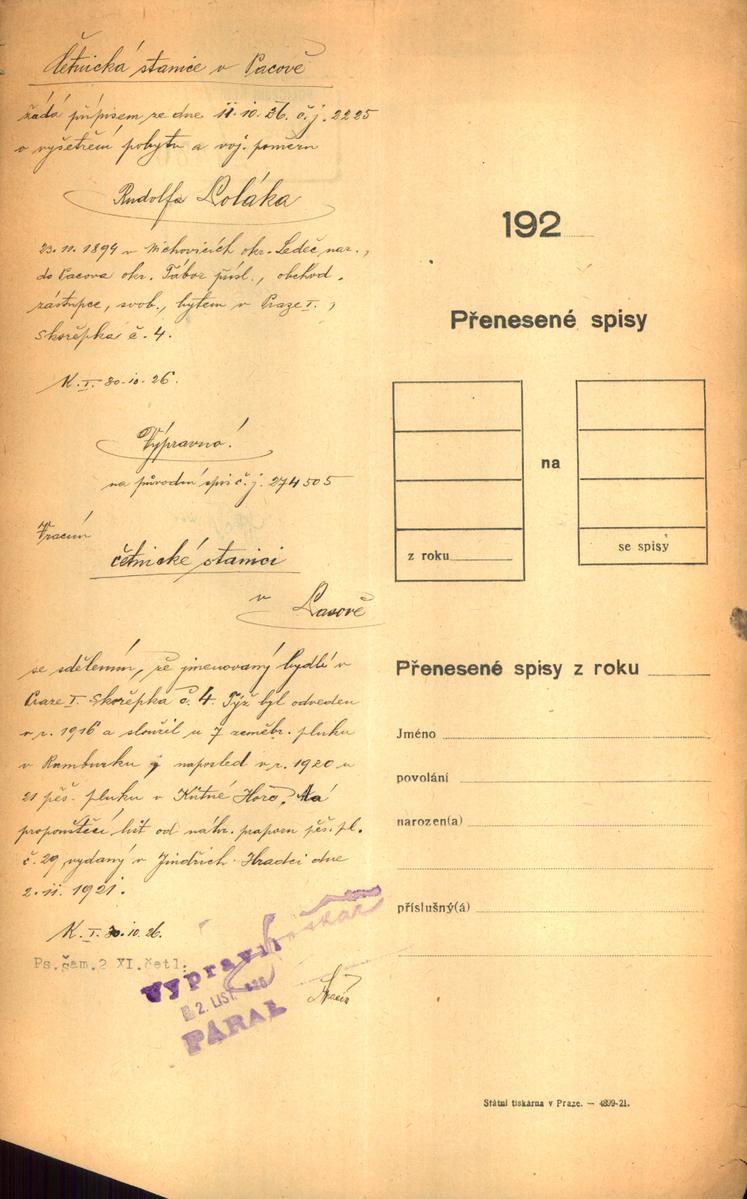 četnická stanice v Pacově
žádá přípisem ze dne 11.10.26. č.j. 2225
o vyšetření pobytu a voj. poměru
Rudolfa Poláka
23.11.1894 v Michovicích okr. Ledeč nar.,
do Pacova okr. Tábor přísl., obchod.
zástupce, svob., bytem v Praze I.,
Skořepka č. 4.
K. I. 30.10.26.
Výpravno!
na původní spis č.j. 274505
Vracím
četnické stanici
v Pacově
se sdělením, že jmenovaný bydlí v
Praze I. Skořepka č. 4. Týž byl odveden
v r. 1916 a sloužil u 7 zeměbr. pluku
v Rumburku, naposled v r. 1920 u
21 pěš. pluku v Kutné Hoře. Má
propouštěcí list od náhr. praporu pěš. pl.
č. 29 vydaný v Jindřich. Hradci dne
2.11.1921.
K. I. 30.10.26.
Ps.šam.2 XI.četl:
Vypravil
2. LIST. 1926
PÁRAL
192
Přenesené spisy
na
z roku
se spisy
Přenesené spisy z roku
Jméno
povolání
narozen(a)
příslušný(á)
Státní tiskárna v Praze. — 4899-21.